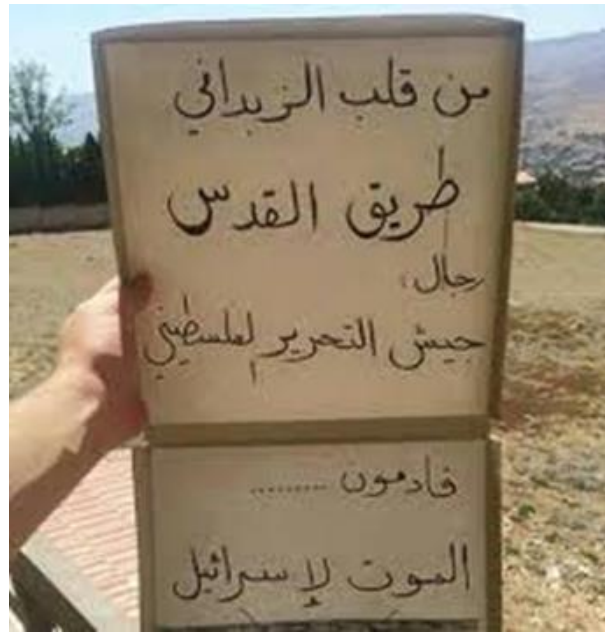 من قلب الزبداني
طريق القدس
رجال:
جيش التحرير الفلسطيني
قادمون .........
الموت لإسرائيل